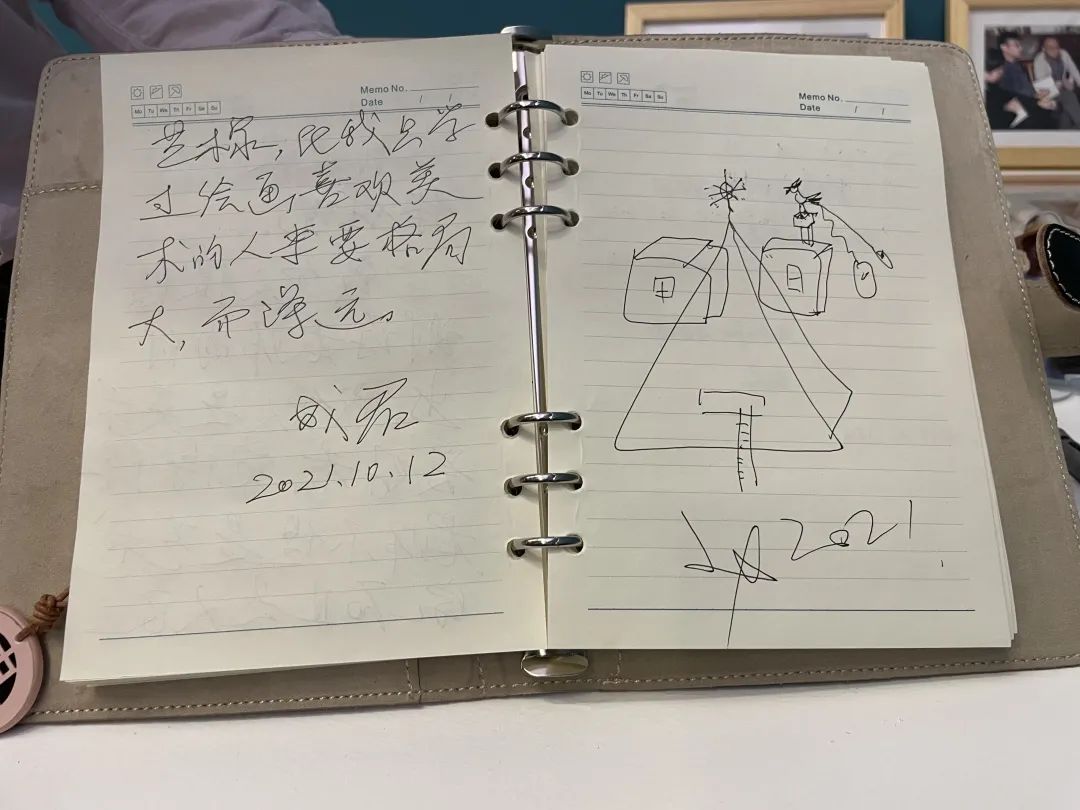 Mo Tu We Th Fr Sa Su
Memo No.
Date / /
艺术家，比我只学
过绘画，喜欢美
术的人 要格局
大，而深远。
君
2021.10.12
Mo Tu We Th Fr Sa Su
Memo No.
Date / /
2021